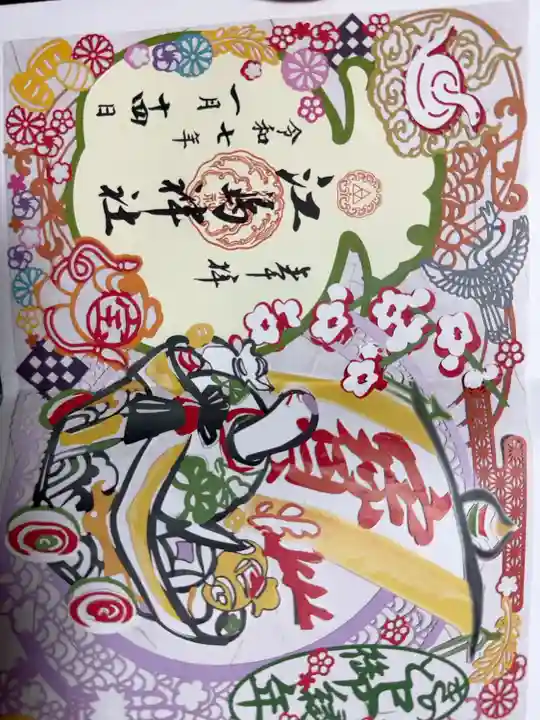 奉拝
江島神社
令和七年
一月十四日
宝
寶
御縁年